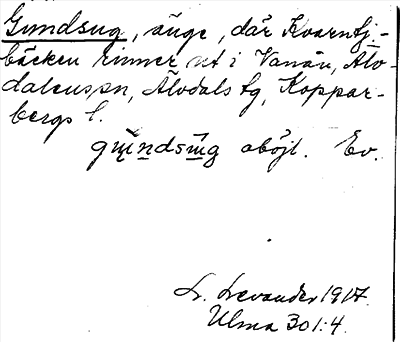 Gundsug, änge, där Kvarntj.-
bäcken rinner ut i Vanån, Älv-
dalens sn, Älvdals tg, Koppar-
bergs l.
gundsug oböjl. Ev.
L. Levander 1917.
Ulma 301:4.